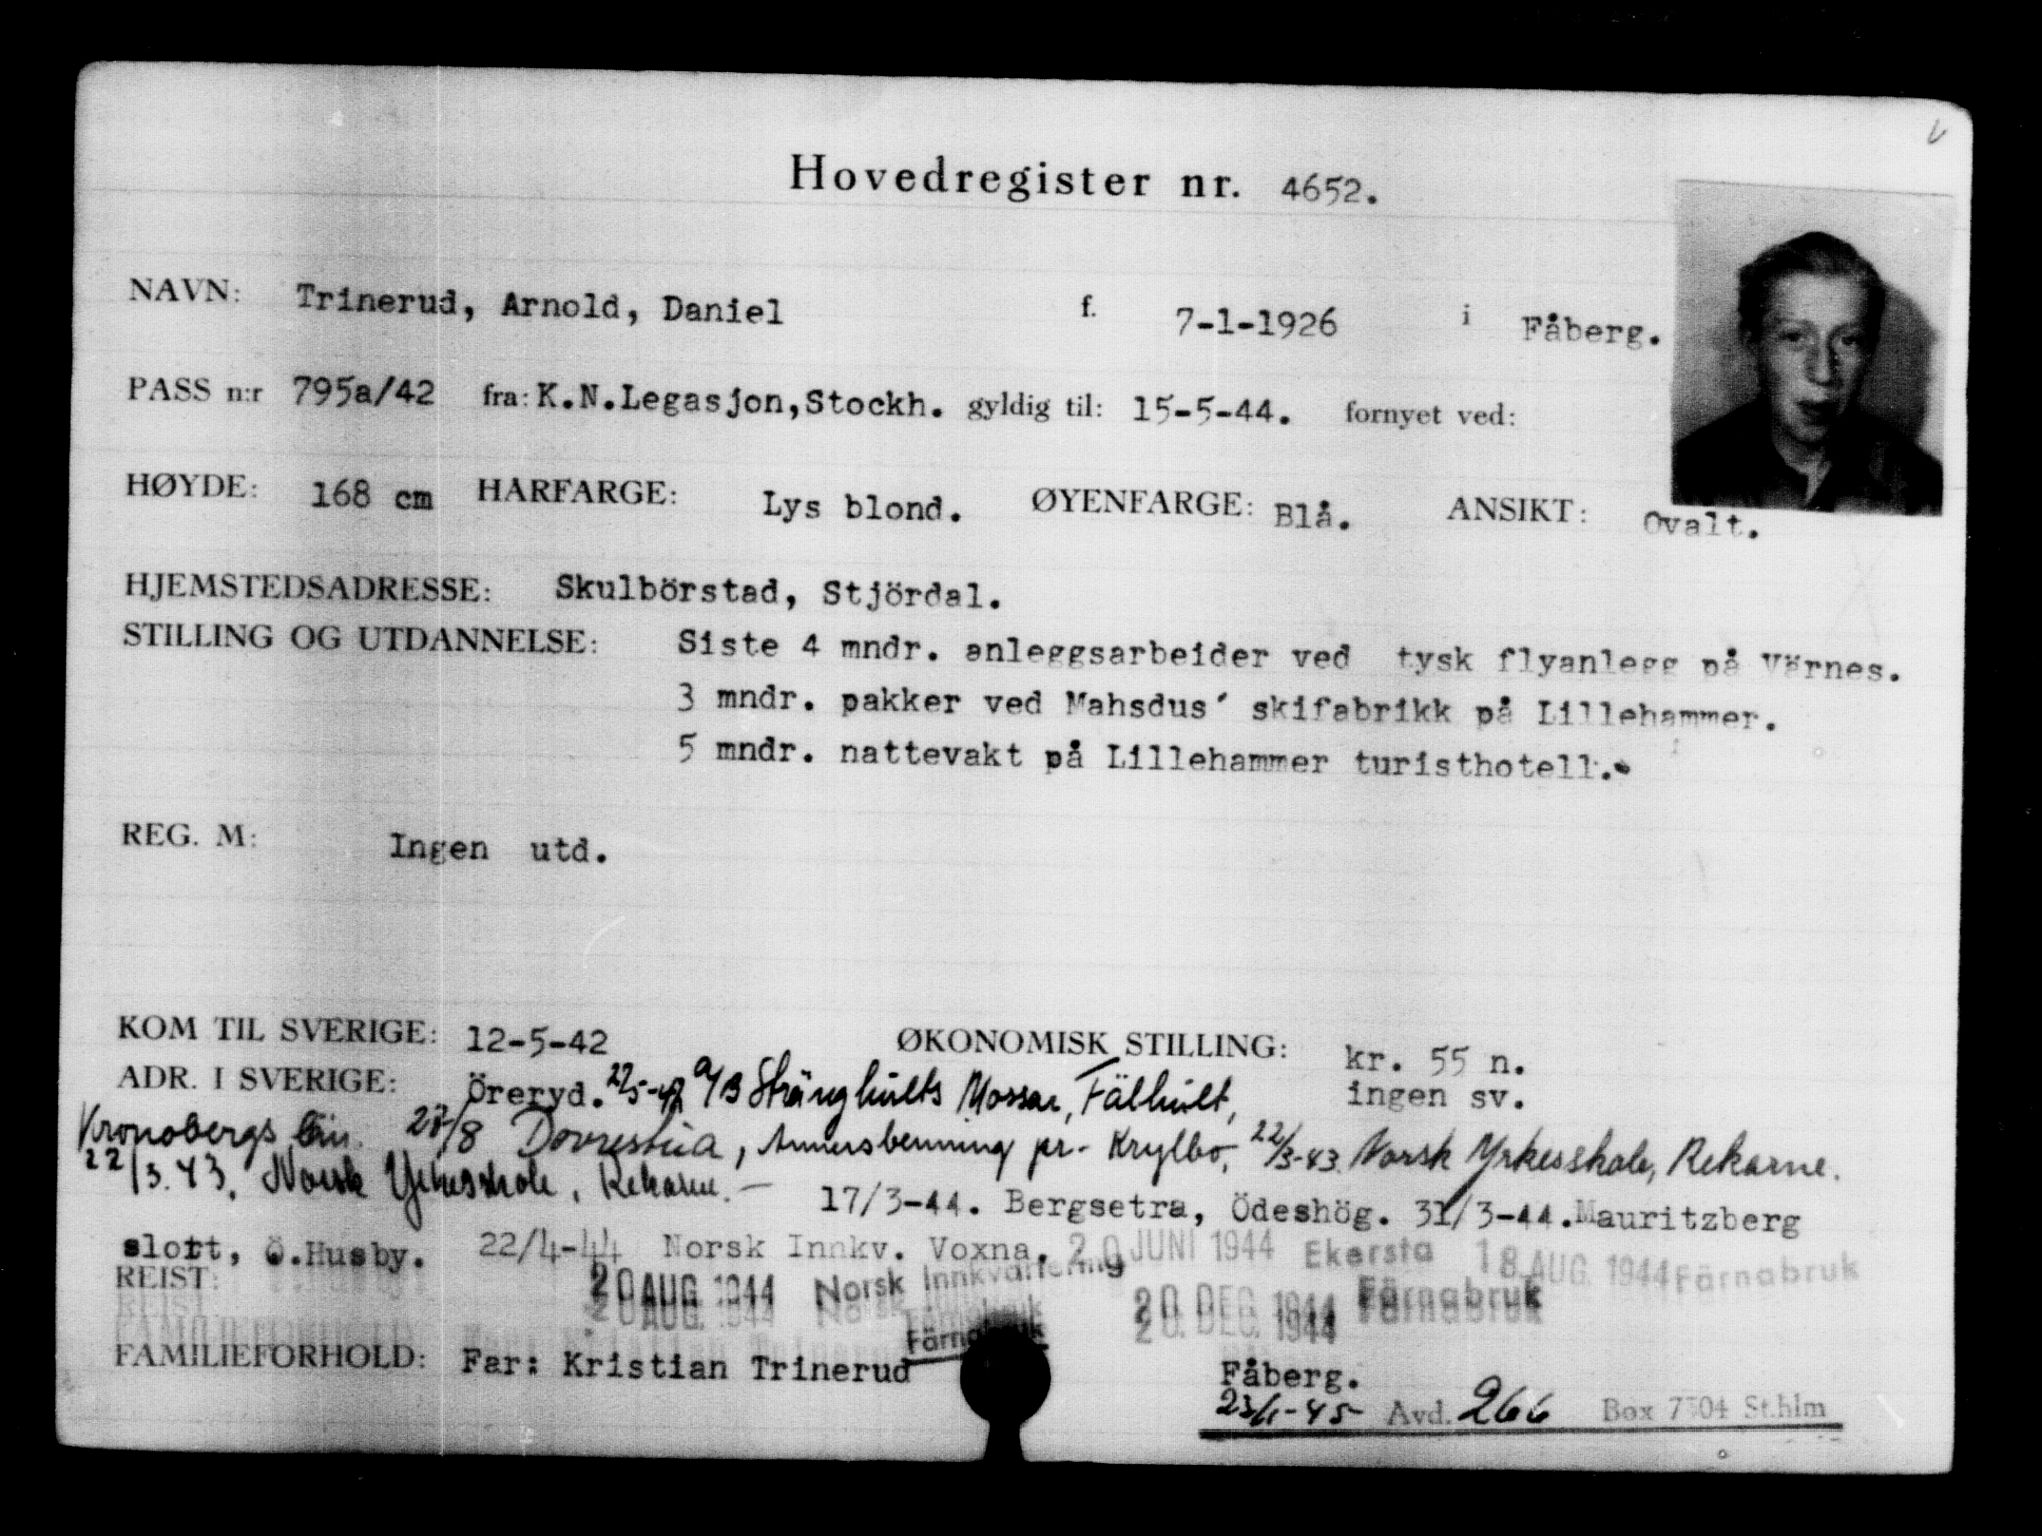 Hovedregister nr. 4652.
NAVN: Trinerud, Arnold, Daniel f. 7-1-1926 i Fåberg.
PASS n:r 795a/42 fra: K.N.Legasjon,Stockh. gyldig til: 15-5-44. fornyet ved:
HØYDE: 168 cm HÅRFARGE: Lys blond. ØYENFARGE: Blå. ANSIKT: Ovalt.
HJEMSTEDSADRESSE: Skulbörstad, Stjördal.
STILLING OG UTDANNELSE: Siste 4 mndr. anleggsarbeider ved tysk flyanlegg på Värnes.
3 mndr. pakker ved Mahsdus´ skifabrikk på Lillehammer.
5 mndr. nattevakt på Lillehammer turisthotell.
REG. M: Ingen utd.
KOM TIL SVERIGE: 12-5-42 ØKONOMISK STILLING: kr. 55 n.
ingen sv.
ADR. I SVERIGE: Öreryd. A/B Stränghults Mossar, Fälhult,
Kronobergs län. 27/8 Dovrestua, Annersbenning pr. Krylbo, 22/3-43 Norsk Yrkesskole, Rekarne.
22/3.43. Norsk Yrkesskole, Rekarne. — 17/3-44. Bergsetra, Ödeshög. 31/3-44. Mauritzberg
slott, Ö.Husby. 22/4-44 Norsk Innkv. Voxna. 20 JUNI 1944 Ekersta 18 AUG. 1944 Färnabruk
REIST: 20 AUG. 1944 Norsk Innkvartering Färnabruk 20. DEC. 1944 Färnabruk
FAMILIEFORHOLD: Far: Kristian Trinerud Fåberg.
23/1-45 Avd. 266 Box 7504 St.hlm